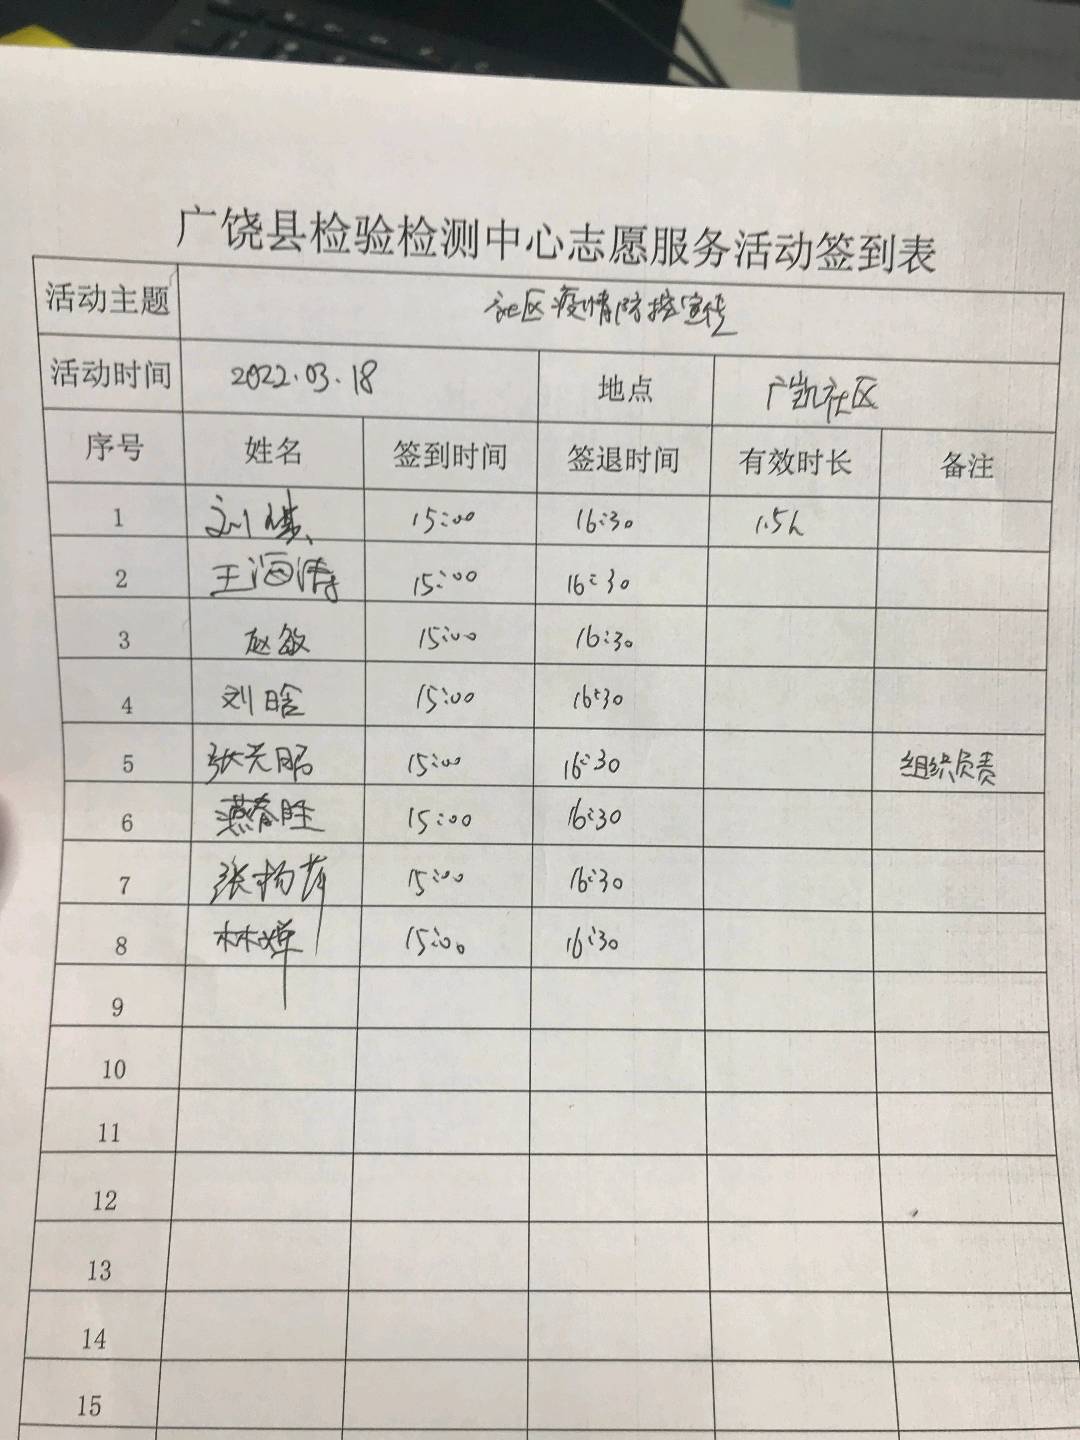 广饶县检验检测中心志愿服务活动签到表
活动主题 社区疫情防控宣传
活动时间 2022.03.18 地点 广凯社区
序号 姓名 签到时间 签退时间 有效时长 备注
1 15:00 16:30 1.5h
2 王海涛 15:00 16:30
3 赵敏 15:00 16:30
4 刘晗 15:00 16:30
5 15:00 16:30 组织负责
6 燕春胜 15:00 16:30
7 15:00 16:30
8 15:00 16:30
9
10
11
12
13
14
15